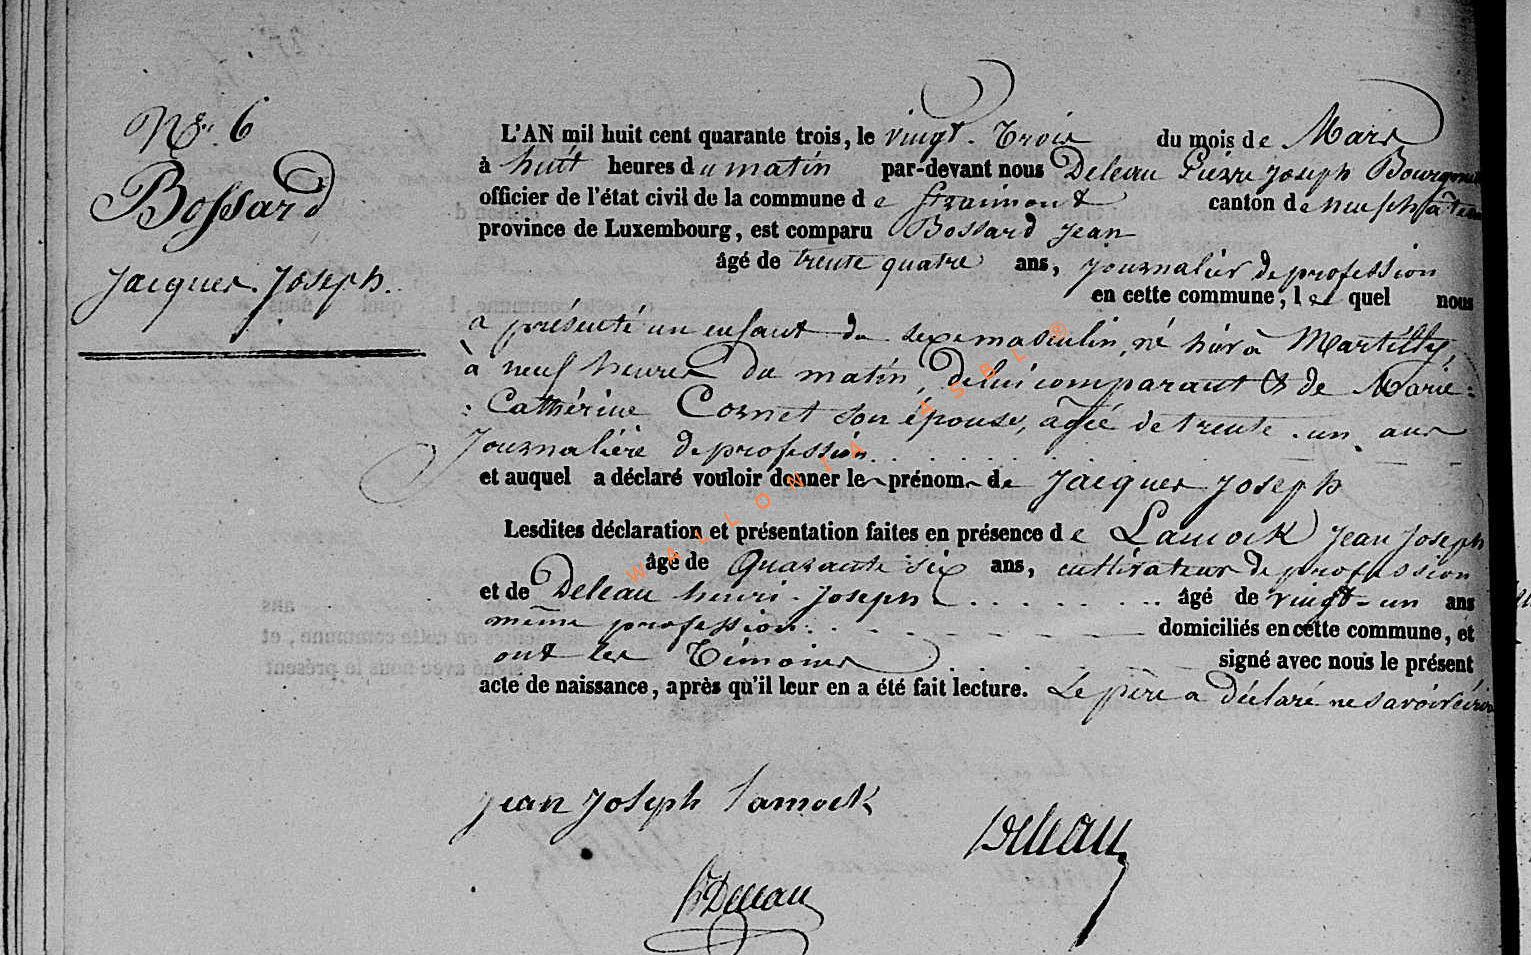 No. 6
Bossard
Jacques Joseph.
L'AN mil huit cent quarante trois, le vingt-Trois du mois de Mars
à huit heures du matin par-devant nous Deleau Pierre Joseph
officier de l'état civil de la commune de Straimont canton de neufchâteau
province de Luxembourg, est comparu Bossard Jean
âgé de trente quatre ans, journalier de profession
en cette commune, lequel nous
a présenté un enfant du sexe masculin, né hier à Martilly,
à neuf heures du matin, de lui comparant & de Marie-
Cathérine Cornet son épouse, âgée de trente-un ans
Journalière de profession
et auquel a déclaré vouloir donner les prénoms de Jacques Joseph
Lesdites déclaration et présentation faites en présence de Lamock Jean Joseph
âgé de Quarante six ans, cultivateur de profession
et de Deleau henri-Joseph âgé de vingt-un ans
même profession domiciliés en cette commune, et
ont les Témoins signé avec nous le présent
acte de naissance, après qu'il leur en a été fait lecture. Le père a déclaré ne savoir écrire
jean joseph lamock
Deleau
hDeleau
WALLONIA ASBL ®